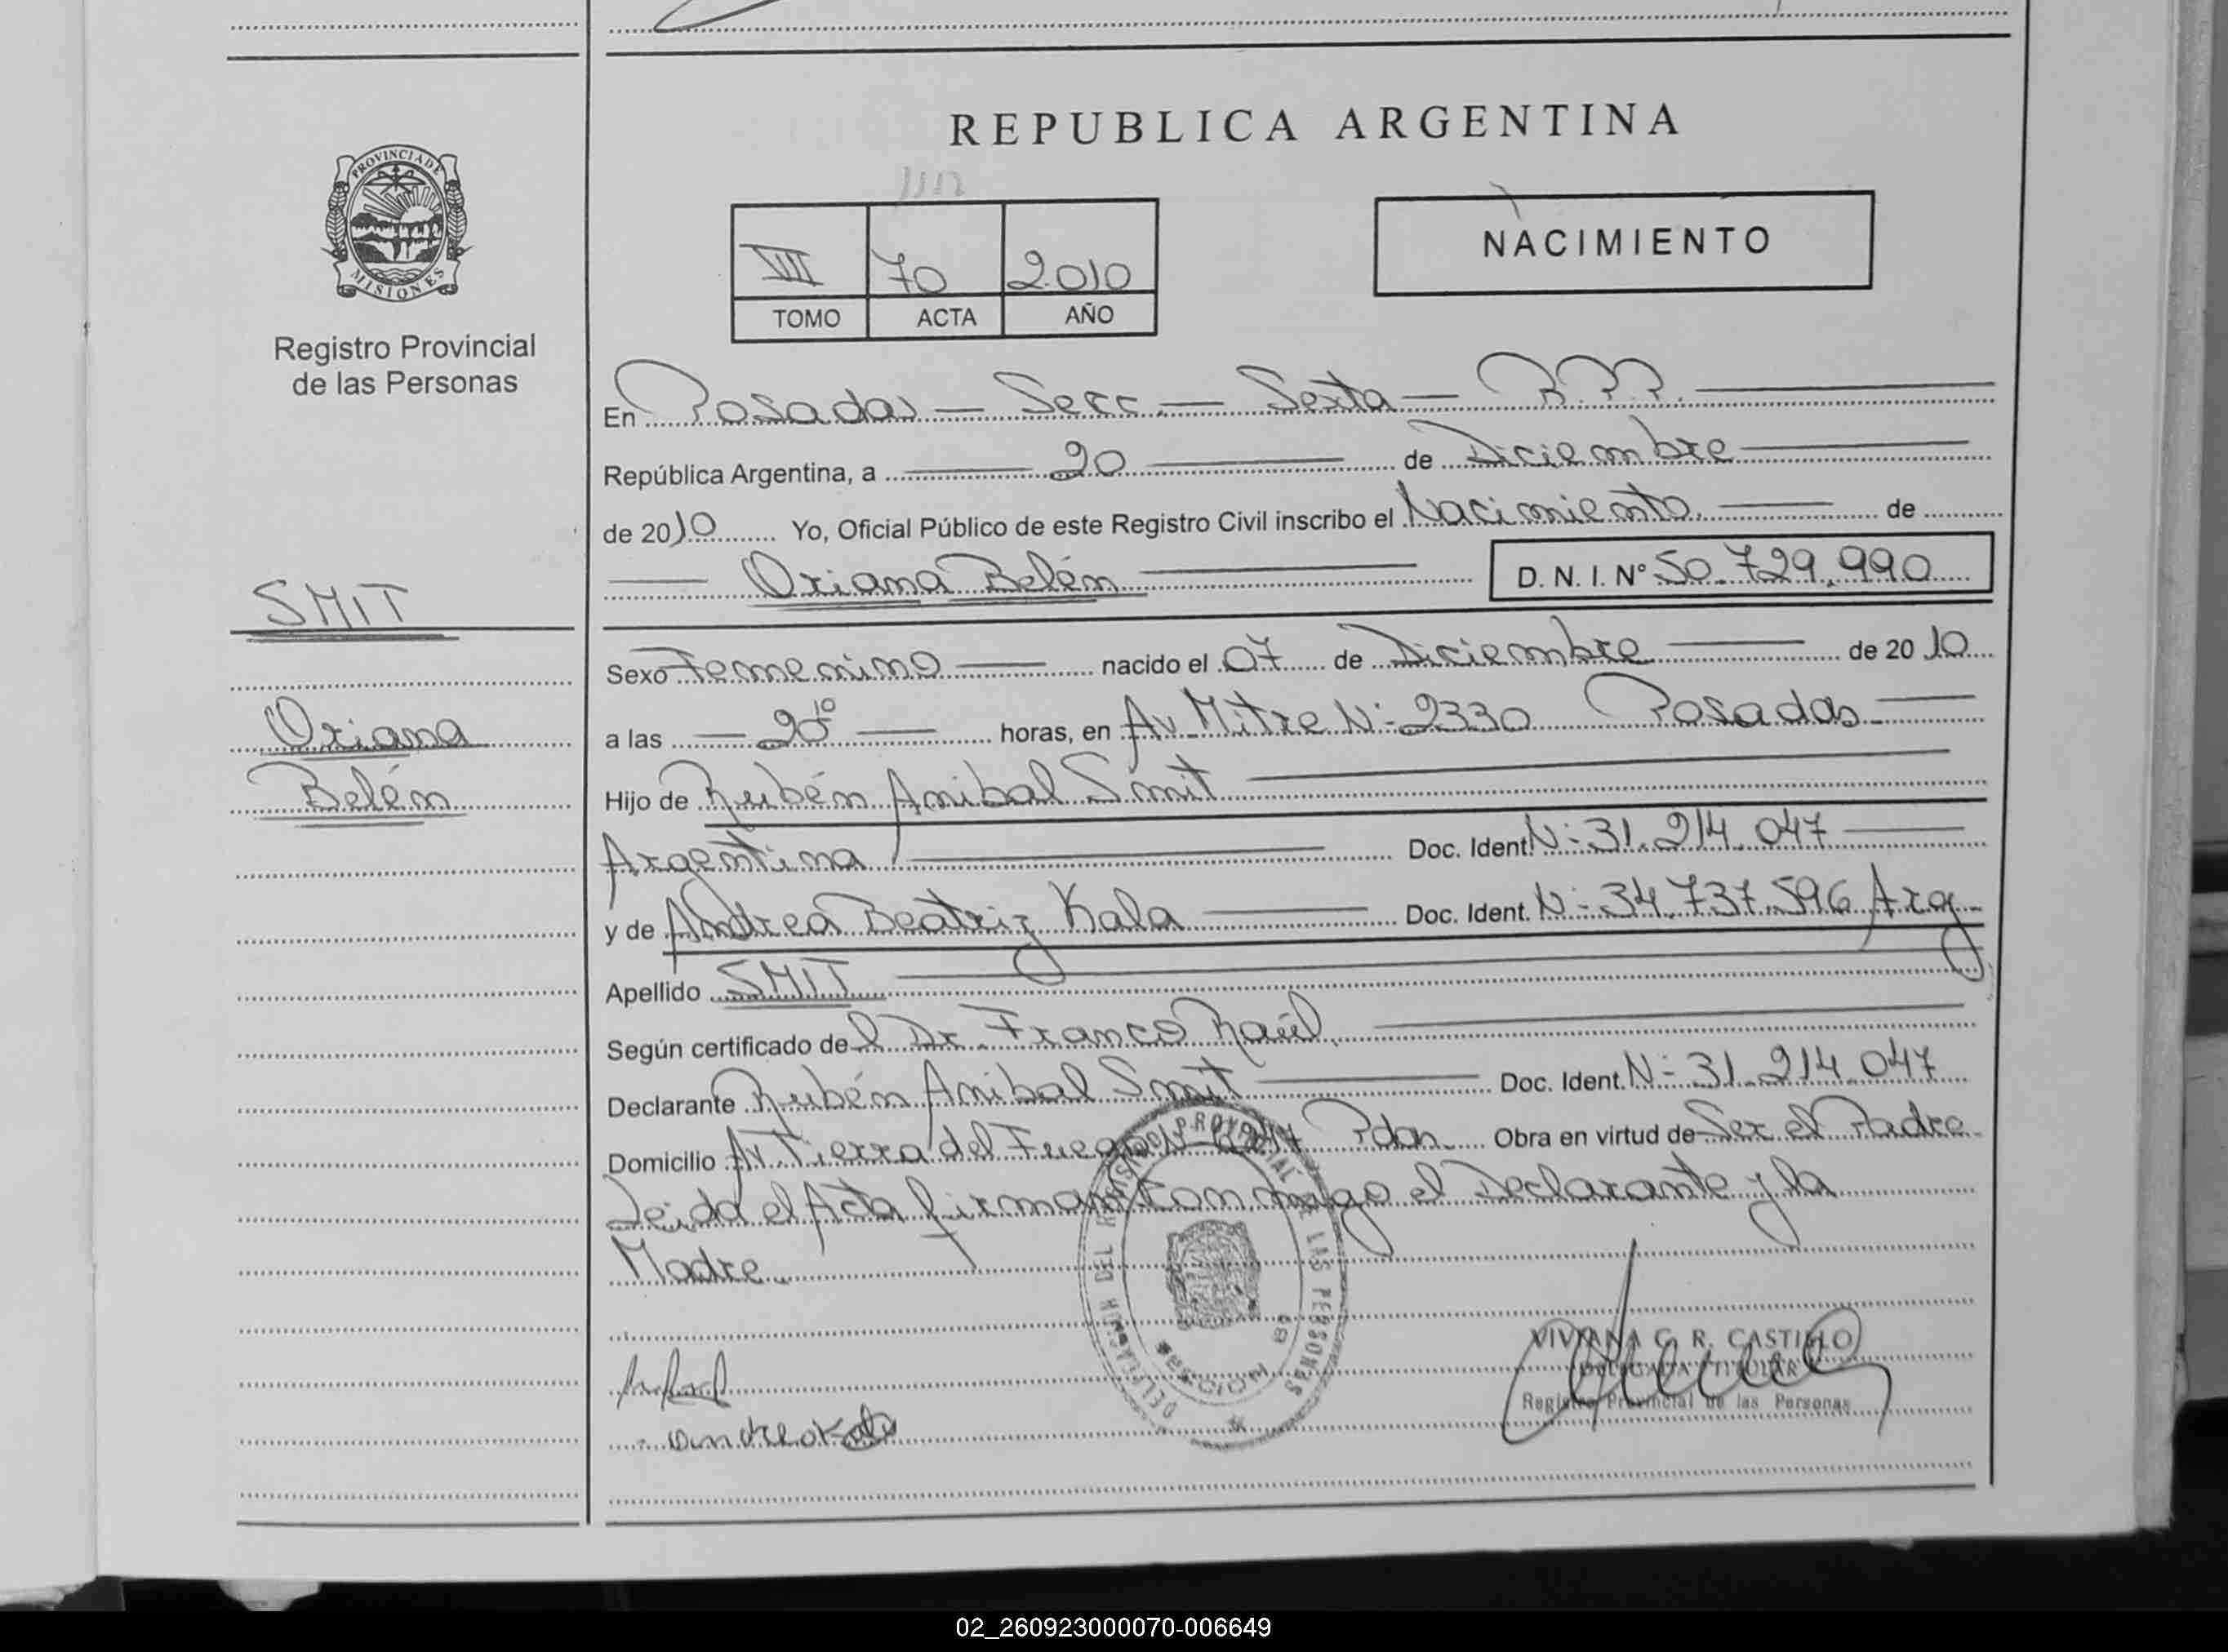 REPUBLICA ARGENTINA
PROVINCIA DE
MISIONES
Registro Provincial
de las Personas
1112
VII 70 2010
TOMO ACTA AÑO
NACIMIENTO
En Posadas — Secc. — Sexta —
República Argentina, a 20 de Diciembre
de 2010 Yo, Oficial Público de este Registro Civil inscribo el Nacimiento. de
Oriana Belén D. N. I. Nº 50.729.990
SMIT
Oriana
Belén
Sexo Femenino nacido el 07 de Diciembre de 20 10
a las — 20 10 — horas, en Av. Mitre Nº 2330 Posadas
Hijo de Rubén Anibal Smit
Argentina Doc. Ident. Nº 31.214.047
y de Andrea Beatriz Kala Doc. Ident. Nº 34.737.596 Arg
Apellido SMIT
Según certificado del Dr. Franco Raúl.
Declarante Rubén Anibal Smit Doc. Ident. Nº 31.214.047
Domicilio Av. Tierra del Fuego Pdas. Obra en virtud de Ser el Padre
Leida el Acta firman conmigo el Declarante y la
Madre.
DELEGACION DEL REGISTRO PROVINCIAL DE LAS PERSONAS
SECCION 6a
VIVIANA G. R. CASTILLO
DELEGADA TITULAR
Registro Provincial de las Personas
andrea Kala
02_260923000070-006649